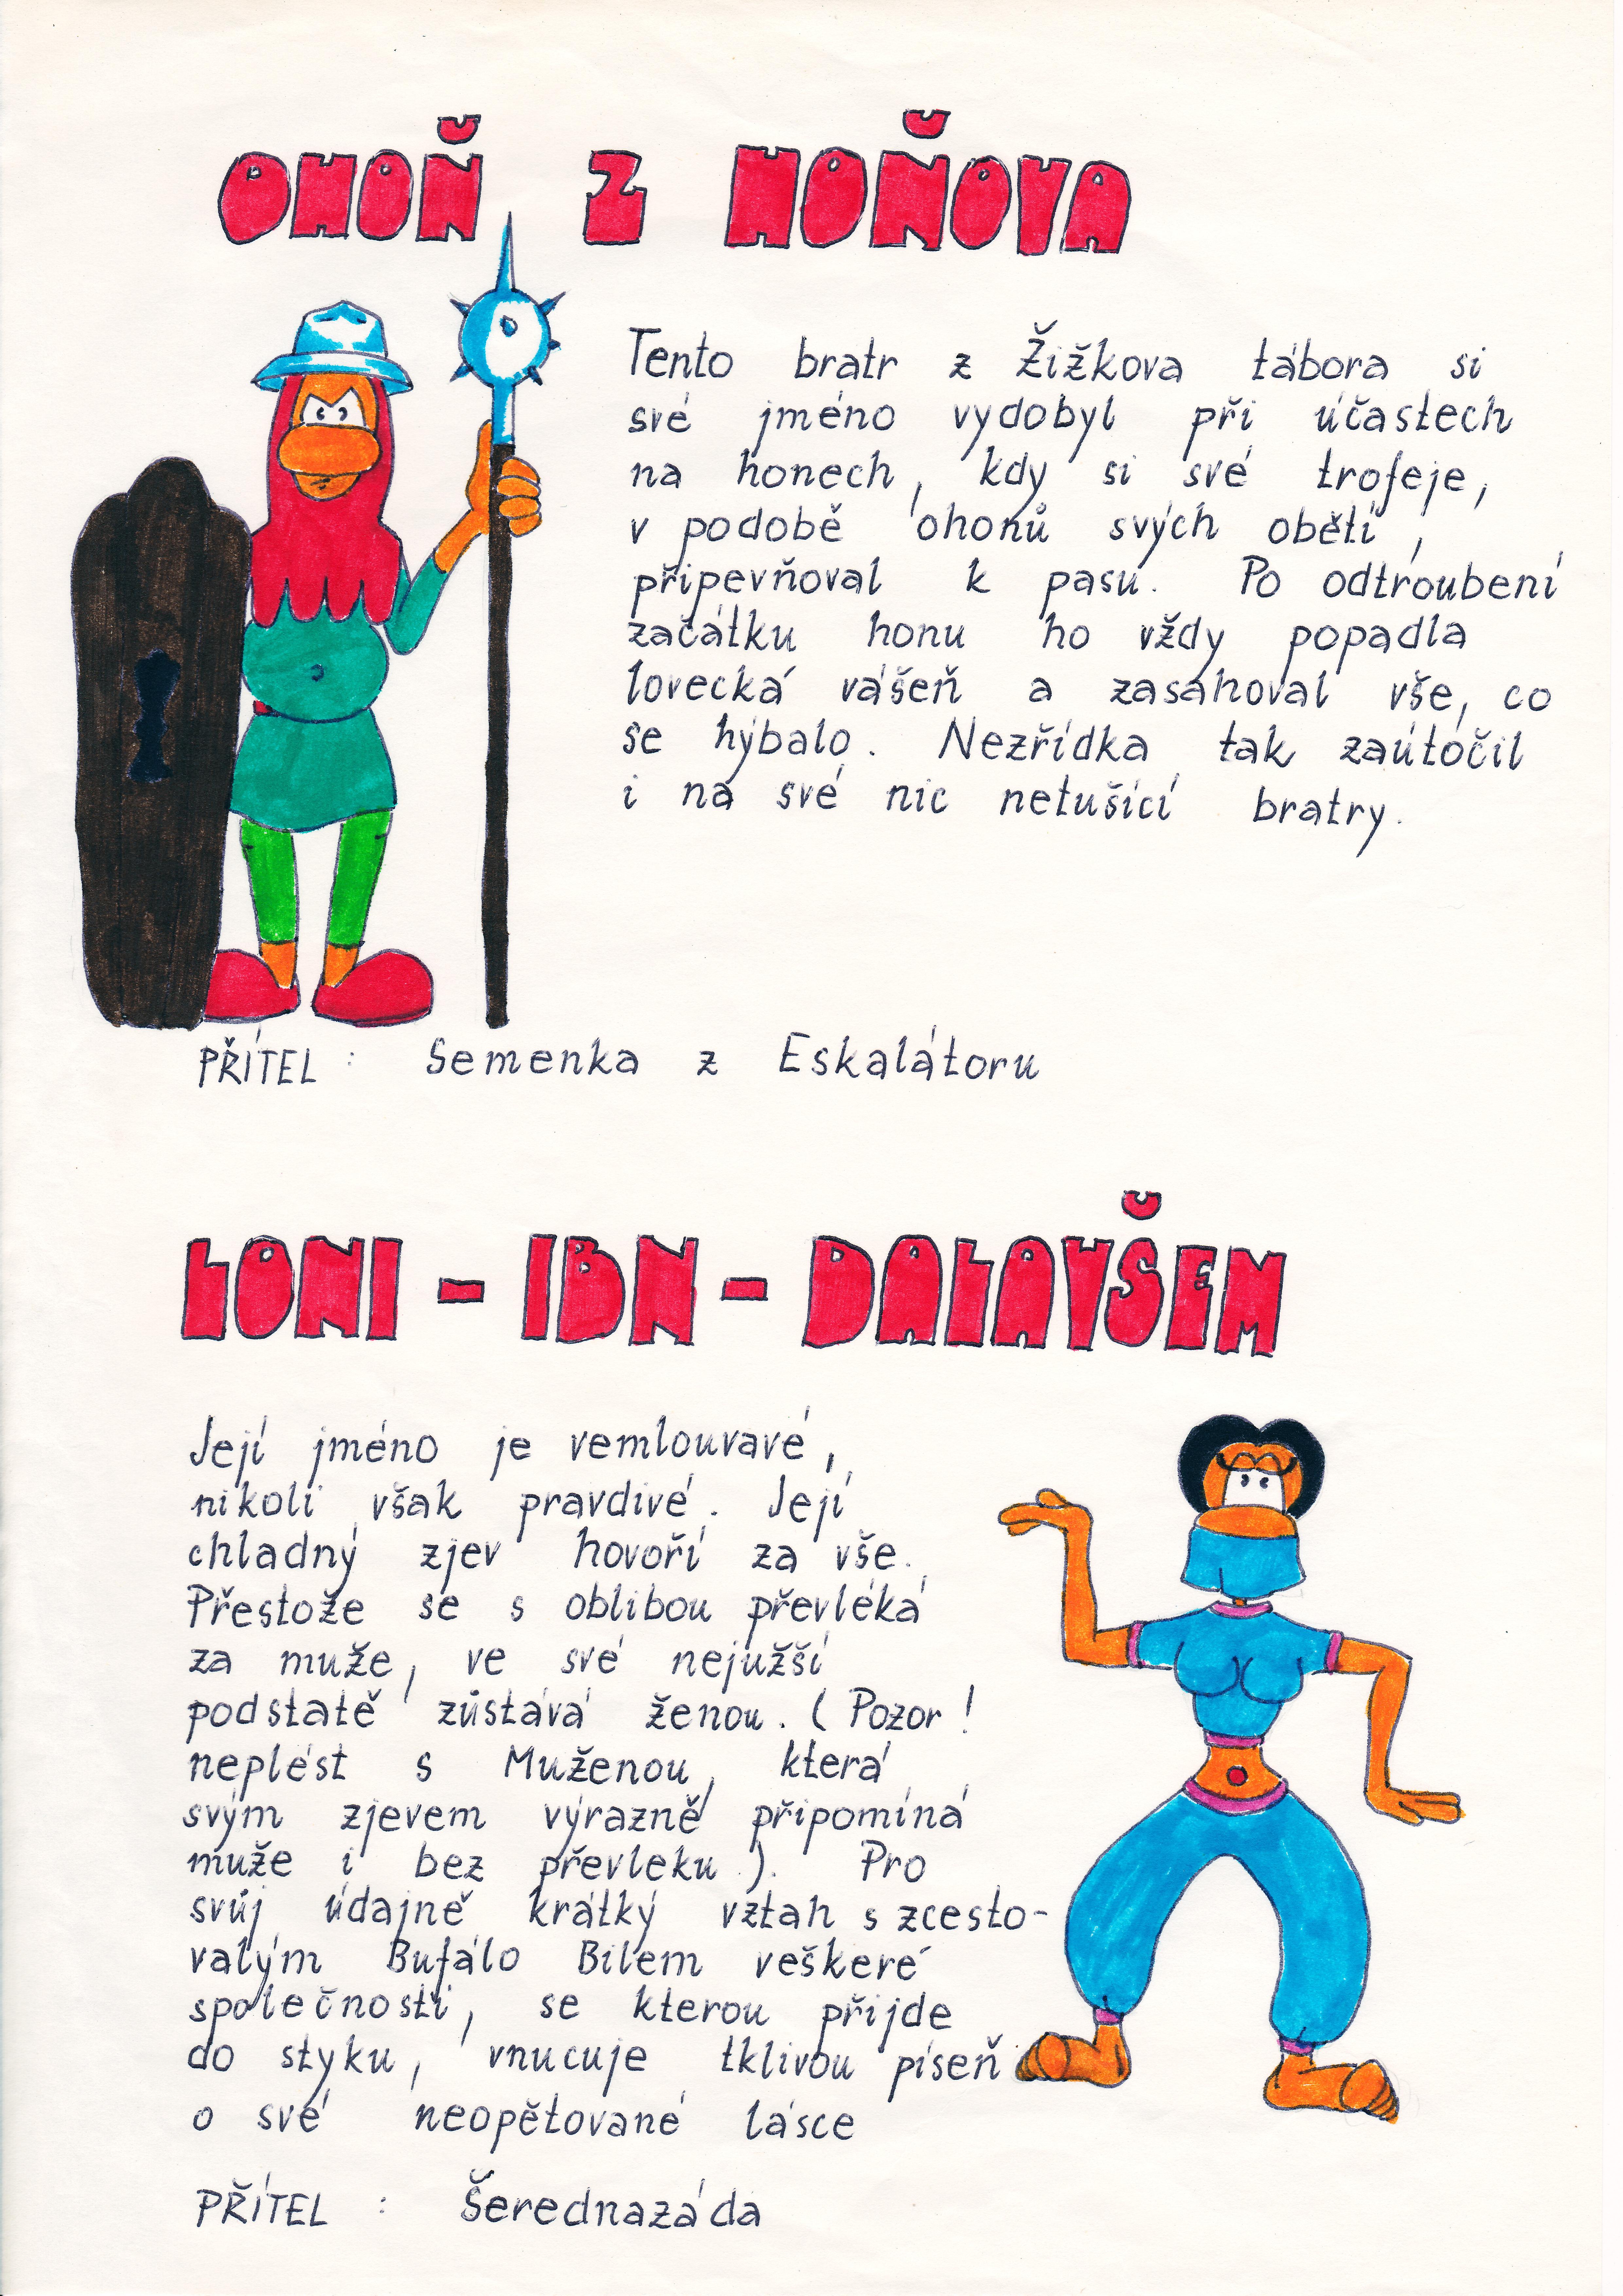 OHOŇ Z HOŇOVA
Tento bratr z Žižkova tábora si
své jméno vydobyl při účastech
na honech, kdy si své trofeje,
v podobě ohonů svých obětí,
připevňoval k pasu. Po odtroubení
začátku honu ho vždy popadla
lovecká vášeň a zasahoval vše, co
se hýbalo. Nezřídka tak zaútočil
i na své nic netušící bratry.
PŘÍTEL : Semenka z Eskalátoru
LONI - IBN - DALAVŠEM
Její jméno je vemlouvavé,
nikoli však pravdivé. Její
chladný zjev hovoří za vše.
Přestože se s oblibou převléká
za muže, ve své nejužší
podstatě zůstává ženou. (Pozor!
neplést s Muženou, která
svým zjevem výrazně připomíná
muže i bez převleku). Pro
svůj údajně krátký vztah s zcesto-
valým Bufálo Bilem veškeré
společnosti, se kterou přijde
do styku, vnucuje tklivou píseň
o své neopětované lásce
PŘÍTEL : Šerednazáda